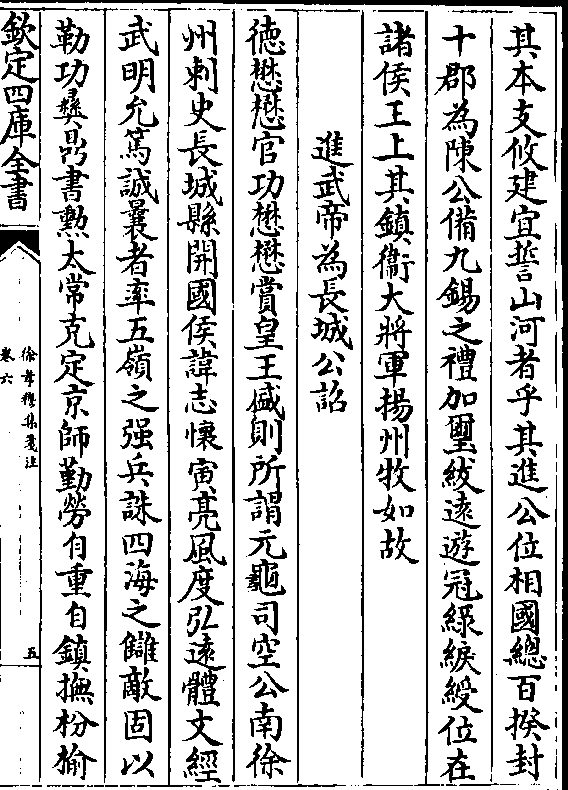 其本支攸建宜誓山河者乎其進公位相國總百揆封
十郡為陳公備九錫之禮加璽紱遠遊冠緑綟綬位在
諸侯王上其鎮衛大將軍揚州牧如故
進武帝為長城公詔
徳懋懋官功懋懋賞皇王盛則所謂元龜司空公南徐
州刺史長城縣開國侯諱志懐寅亮風度弘逺體文經
武明允篤誠曩者率五嶺之强兵誅四海之讎敵固以
勒功彝鼎書勲太常克定京師勤勞自重自鎮撫枌榆
欽定四庫全書
徐孝穆集箋注
卷六
五